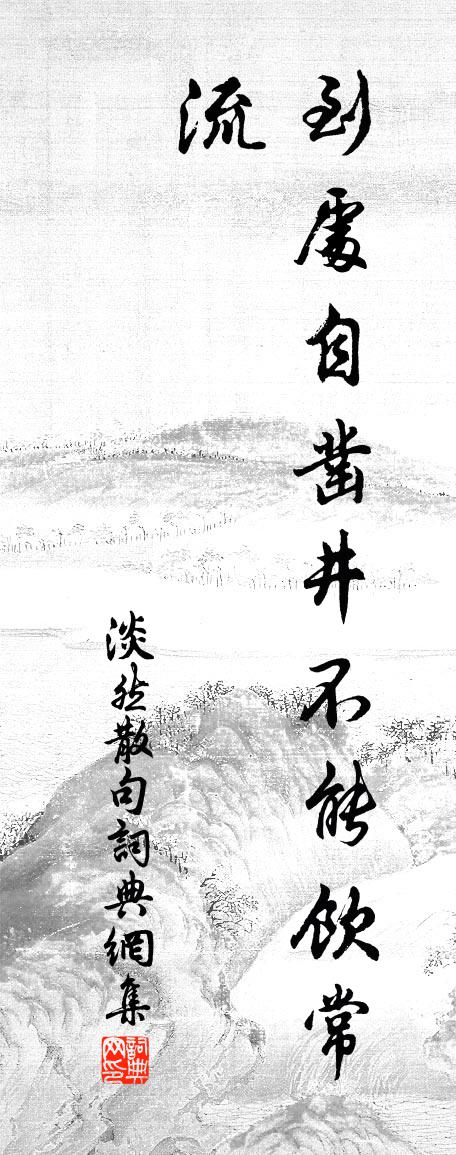 到處自凿井不能飲常
流
淡然散句詞典網集
詞典
网印